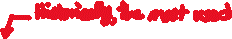 Historically, the most used